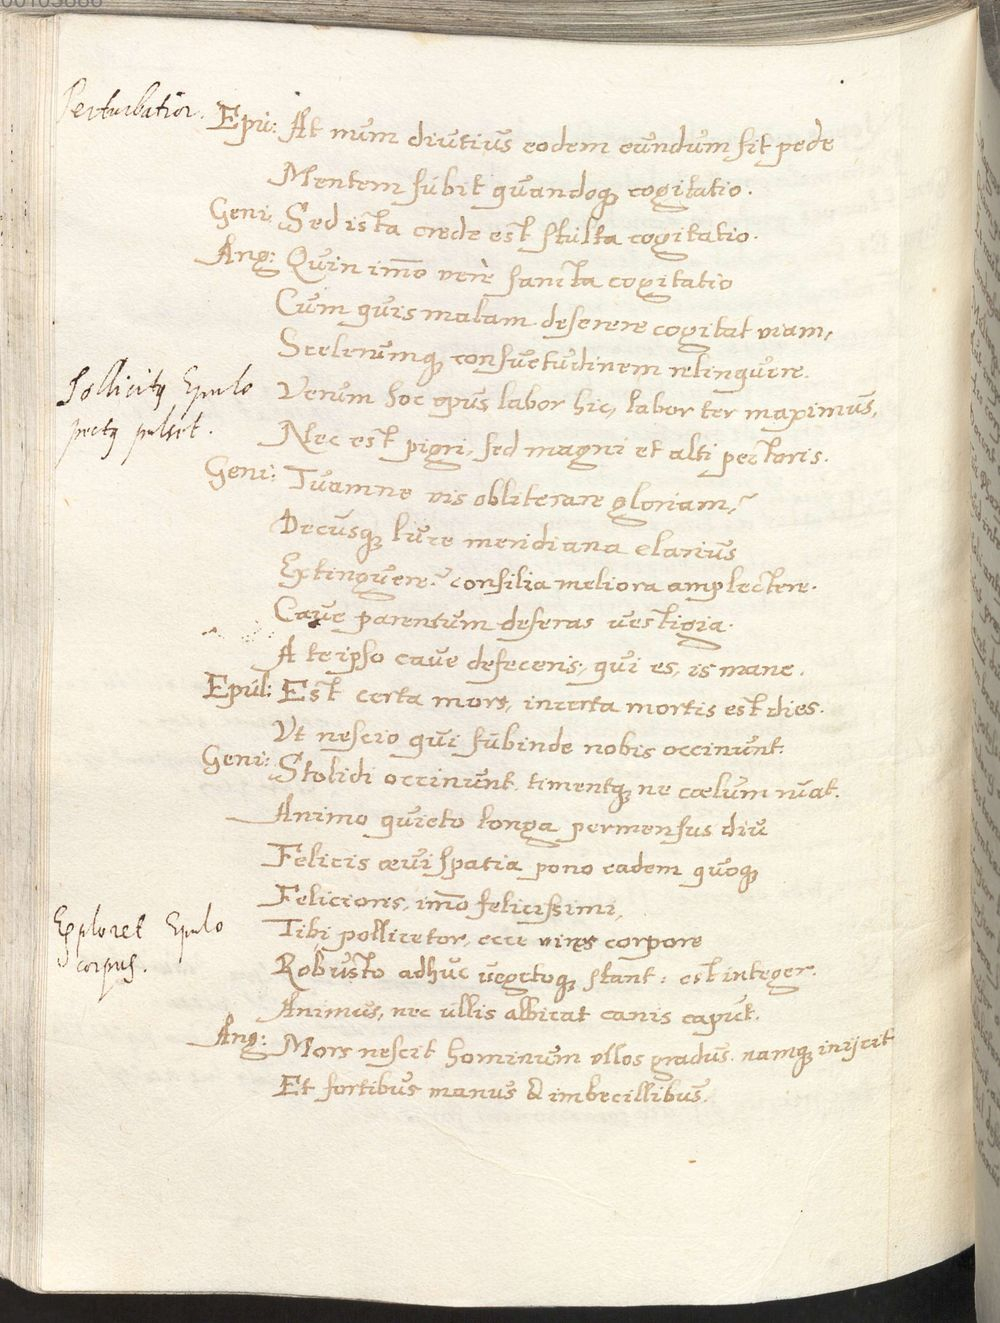 Perturbatior.
Epu: At num diutius eodem eundum sit pede
Mentem subit quandoq; cogitatio.
Geni: Sed ista crede est stulta cogitatio.
Ang: Quin imō vere sancta cogitatio
Cum quis malam deserere cogitat viam,
Scelerumq; consuetudinem relinquere.
Sollicitꝰ Epulo
Verum hoc opus labor hic, labor ter maximus,
pectꝰ pulset.
Nec est pigri, sed magni et alti pectoris.
Geni: Tuamne vis obliterare gloriam,?
Decusq; luce meridiana clarius
Extinguere? consilia meliora amplectere.
Cave parentum deseras vestigia.
A te ipso cave defeceris, qui es, is mane.
Epul: Est certa mors, incerta mortis est dies.
Vt nescio qui subinde nobis occinunt.
Geni: Stolidi occinunt, timentq; ne cælum ruat.
Animo quieto longa permensus diu
Felicis ævi spatia pono eadem quoq;
Feliciores, imō felicissimi,
Exploret Epulo
Tibi pollicetor, ecce vires corpore
corpus.
Robusto adhuc vegetoq; stant: est integer.
Animus, nec ullis albicat canis caput.
Ang: Mors nescit hominum ullos gradus. namq; inijcit
Et fortibus manus & imbecillibus.